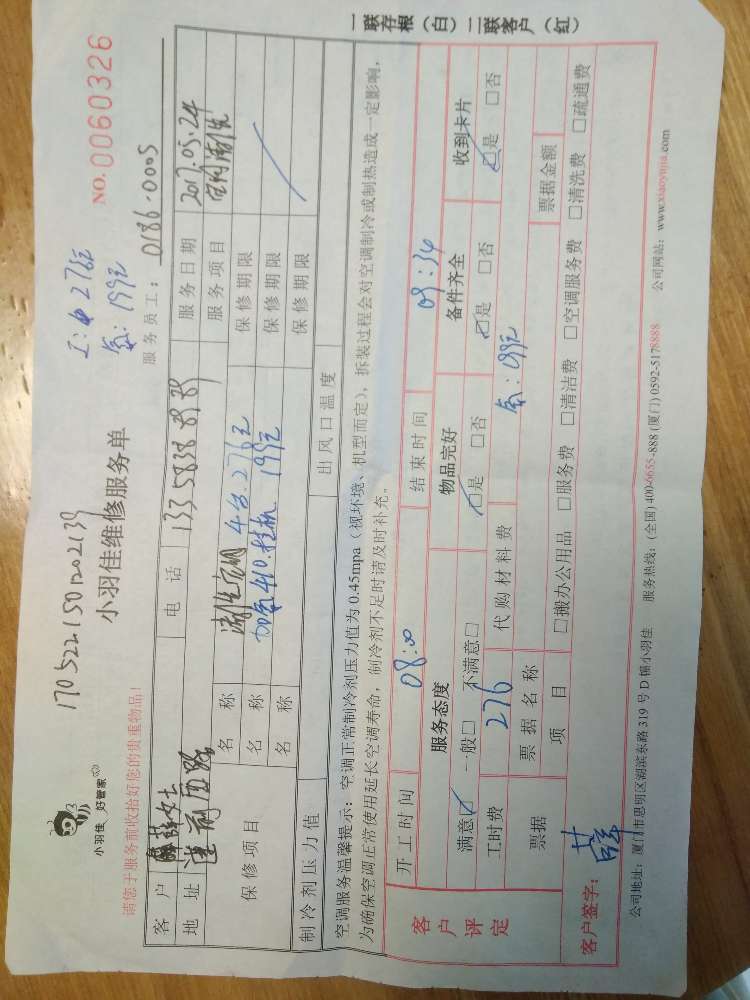 小羽佳 好管家
170522150202139
小羽佳维修服务单
工: 276元
氨: 199元
NO. 0060326
请您于服务前收拾好您的贵重物品!
服务员工: 0186-0005
客户 薛女士 电话 133 5838 8989 服务日期 2017.05.24
地址 莲前西路 服务项目 空调清洗
保修项目 名称 清洗空调 4台.276元 保修期限
名称 加氨410.挂机 199元 保修期限
名称 保修期限
制冷剂压力值 出风口温度
空调服务温馨提示: 空调正常制冷剂压力值为 0.45mpa (视环境、机型而定), 拆装过程会对空调制冷或制热造成一定影响,
为确保空调正常使用延长空调寿命, 制冷剂不足时请及时补充。
客户评定
开工时间 08:00 结束时间 09:34
服务态度 物品完好 备件齐全 收到卡片
满意☑ 一般□ 不满意□ ☑是 □否 ☑是 □否 ☑是 □否
工时费 276 代购材料费 氨: 199元
票据 票据名称 票据金额
项目 □搬办公用品 □服务费 □清洁费 □空调服务费 □清洗费 □疏通费
客户签字: 薛
公司地址: 厦门市思明区湖滨东路 319 号 D 幢小羽佳 服务热线: (全国) 400-6655-888 (厦门) 0592-5178888 公司网站: www.xiaoyujia.com
一联存根(白) 二联客户(红)